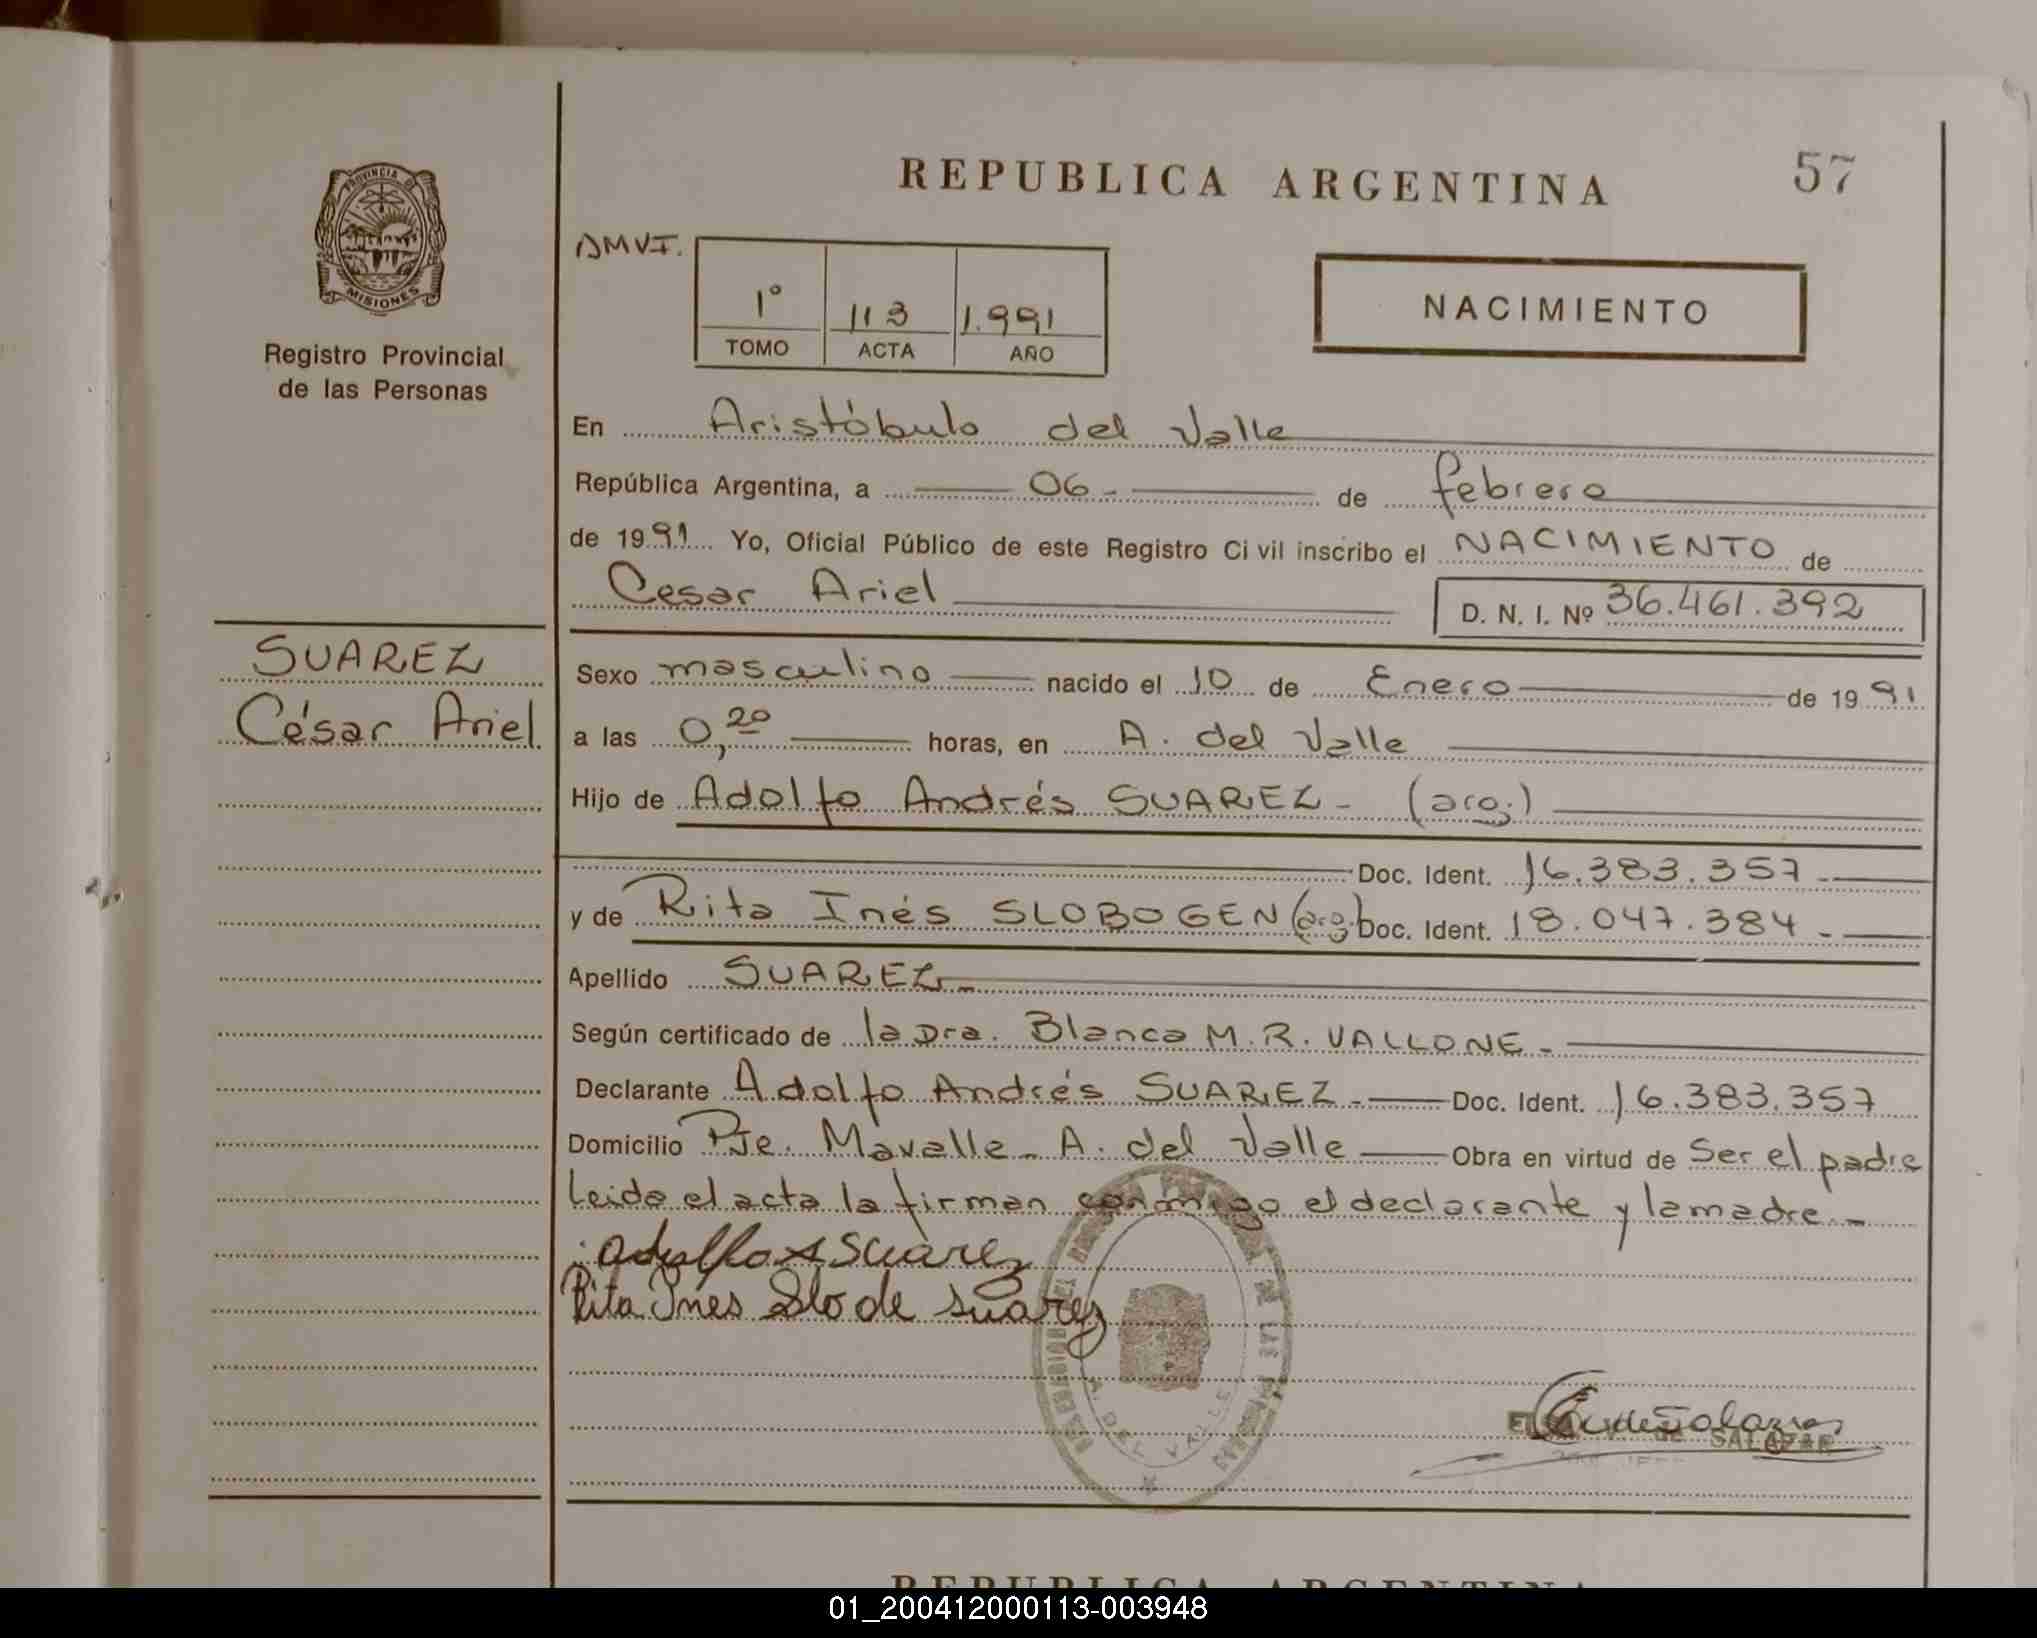 REPUBLICA ARGENTINA
57
PROVINCIA DE
MISIONES
Registro Provincial
de las Personas
1° 113 1.991
TOMO ACTA AÑO
NACIMIENTO
En Aristóbulo del Valle
República Argentina, a 06 - de febrero
de 1991 Yo, Oficial Público de este Registro Civil inscribo el NACIMIENTO de
Cesar Ariel D. N. I. Nº 36.461.392
SUAREZ
César Ariel
Sexo masculino nacido el 10 de Enero de 1991
a las 0,20 horas, en A. del Valle
Hijo de Adolfo Andrés SUAREZ - (arg.)
Doc. Ident. 16.383.357 -
y de Rita Inés SLOBOGEN (arg.) Doc. Ident. 18.047.384 -
Apellido SUAREZ -
Según certificado de la Dra. Blanca M. R. VALLONE -
Declarante Adolfo Andrés SUAREZ - Doc. Ident. 16.383.357
Domicilio Pje. Mavalle - A. del Valle Obra en virtud de Ser el padre
Leida el acta la firman conmigo el declarante y la madre -
Adolfo A Suarez
Rita Ines Slo de Suarez
A. DEL VALLE
DE SALAZAR
REPUBLICA ARGENTINA
01_200412000113-003948